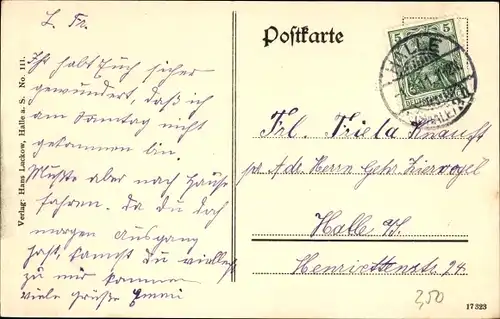 L. Fr.
Ihr habt Euch sicher
gewundert, daß ich
am Sonntag nicht
gekommen bin.
Mußte aber nach Hause
fahren. Da du doch
morgen Ausgang
hast, kannst Du vielleicht
zu mir kommen
viele Grüße Emmi
Verlag: Hans Lackow, Halle a. S. No. 111.
Postkarte
5 5
HALLE
Frl. Frieda
Herrn Geh. Ziervogel
Halle a/S.
Henriettenstr. 24.
2,50
17323